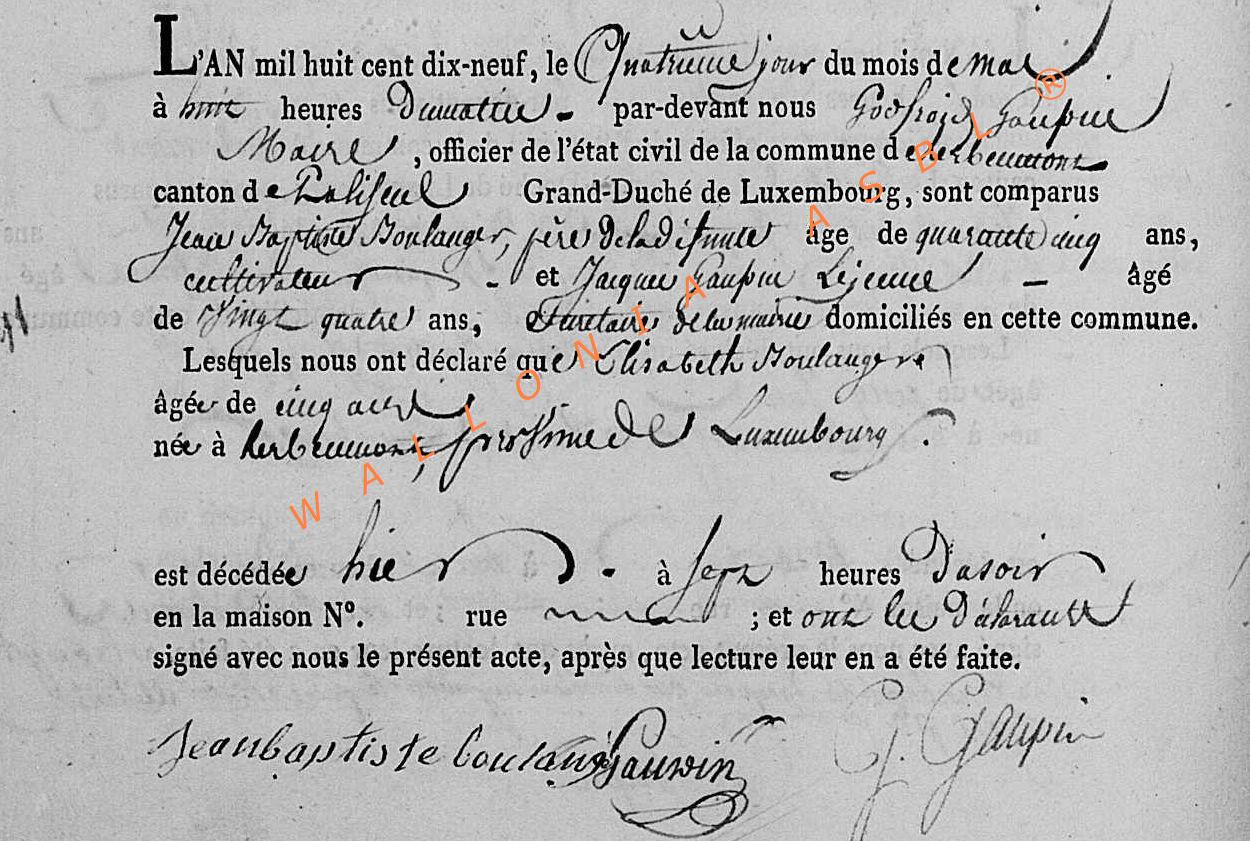 L'AN mil huit cent dix-neuf, le Quatrieme jour du mois de mai
à huit heures Dumatin - par-devant nous Godfroid Gaupin
Maire, officier de l'état civil de la commune de herbeumont
canton de Paliseul Grand-Duché de Luxembourg, sont comparus
Jean Baptiste Boulanger, père deladefunte âge de quarante cinq ans,
cultivateur - et Jacques Gaupin Lejeune — âgé
de Vingt quatre ans, secretaire delamairie domiciliés en cette commune.
Lesquels nous ont déclaré que Elisabeth Boulanger
âgée de cinq ans
née à herbeumont, province de Luxembourg.
est décédée hier à sept heures dusoir
en la maison N°. rue ; et ont les déclarants
signé avec nous le présent acte, après que lecture leur en a été faite.
Jeanbaptiste boulang Gauwin G. Gaupin
WALLONIA ASBL ®